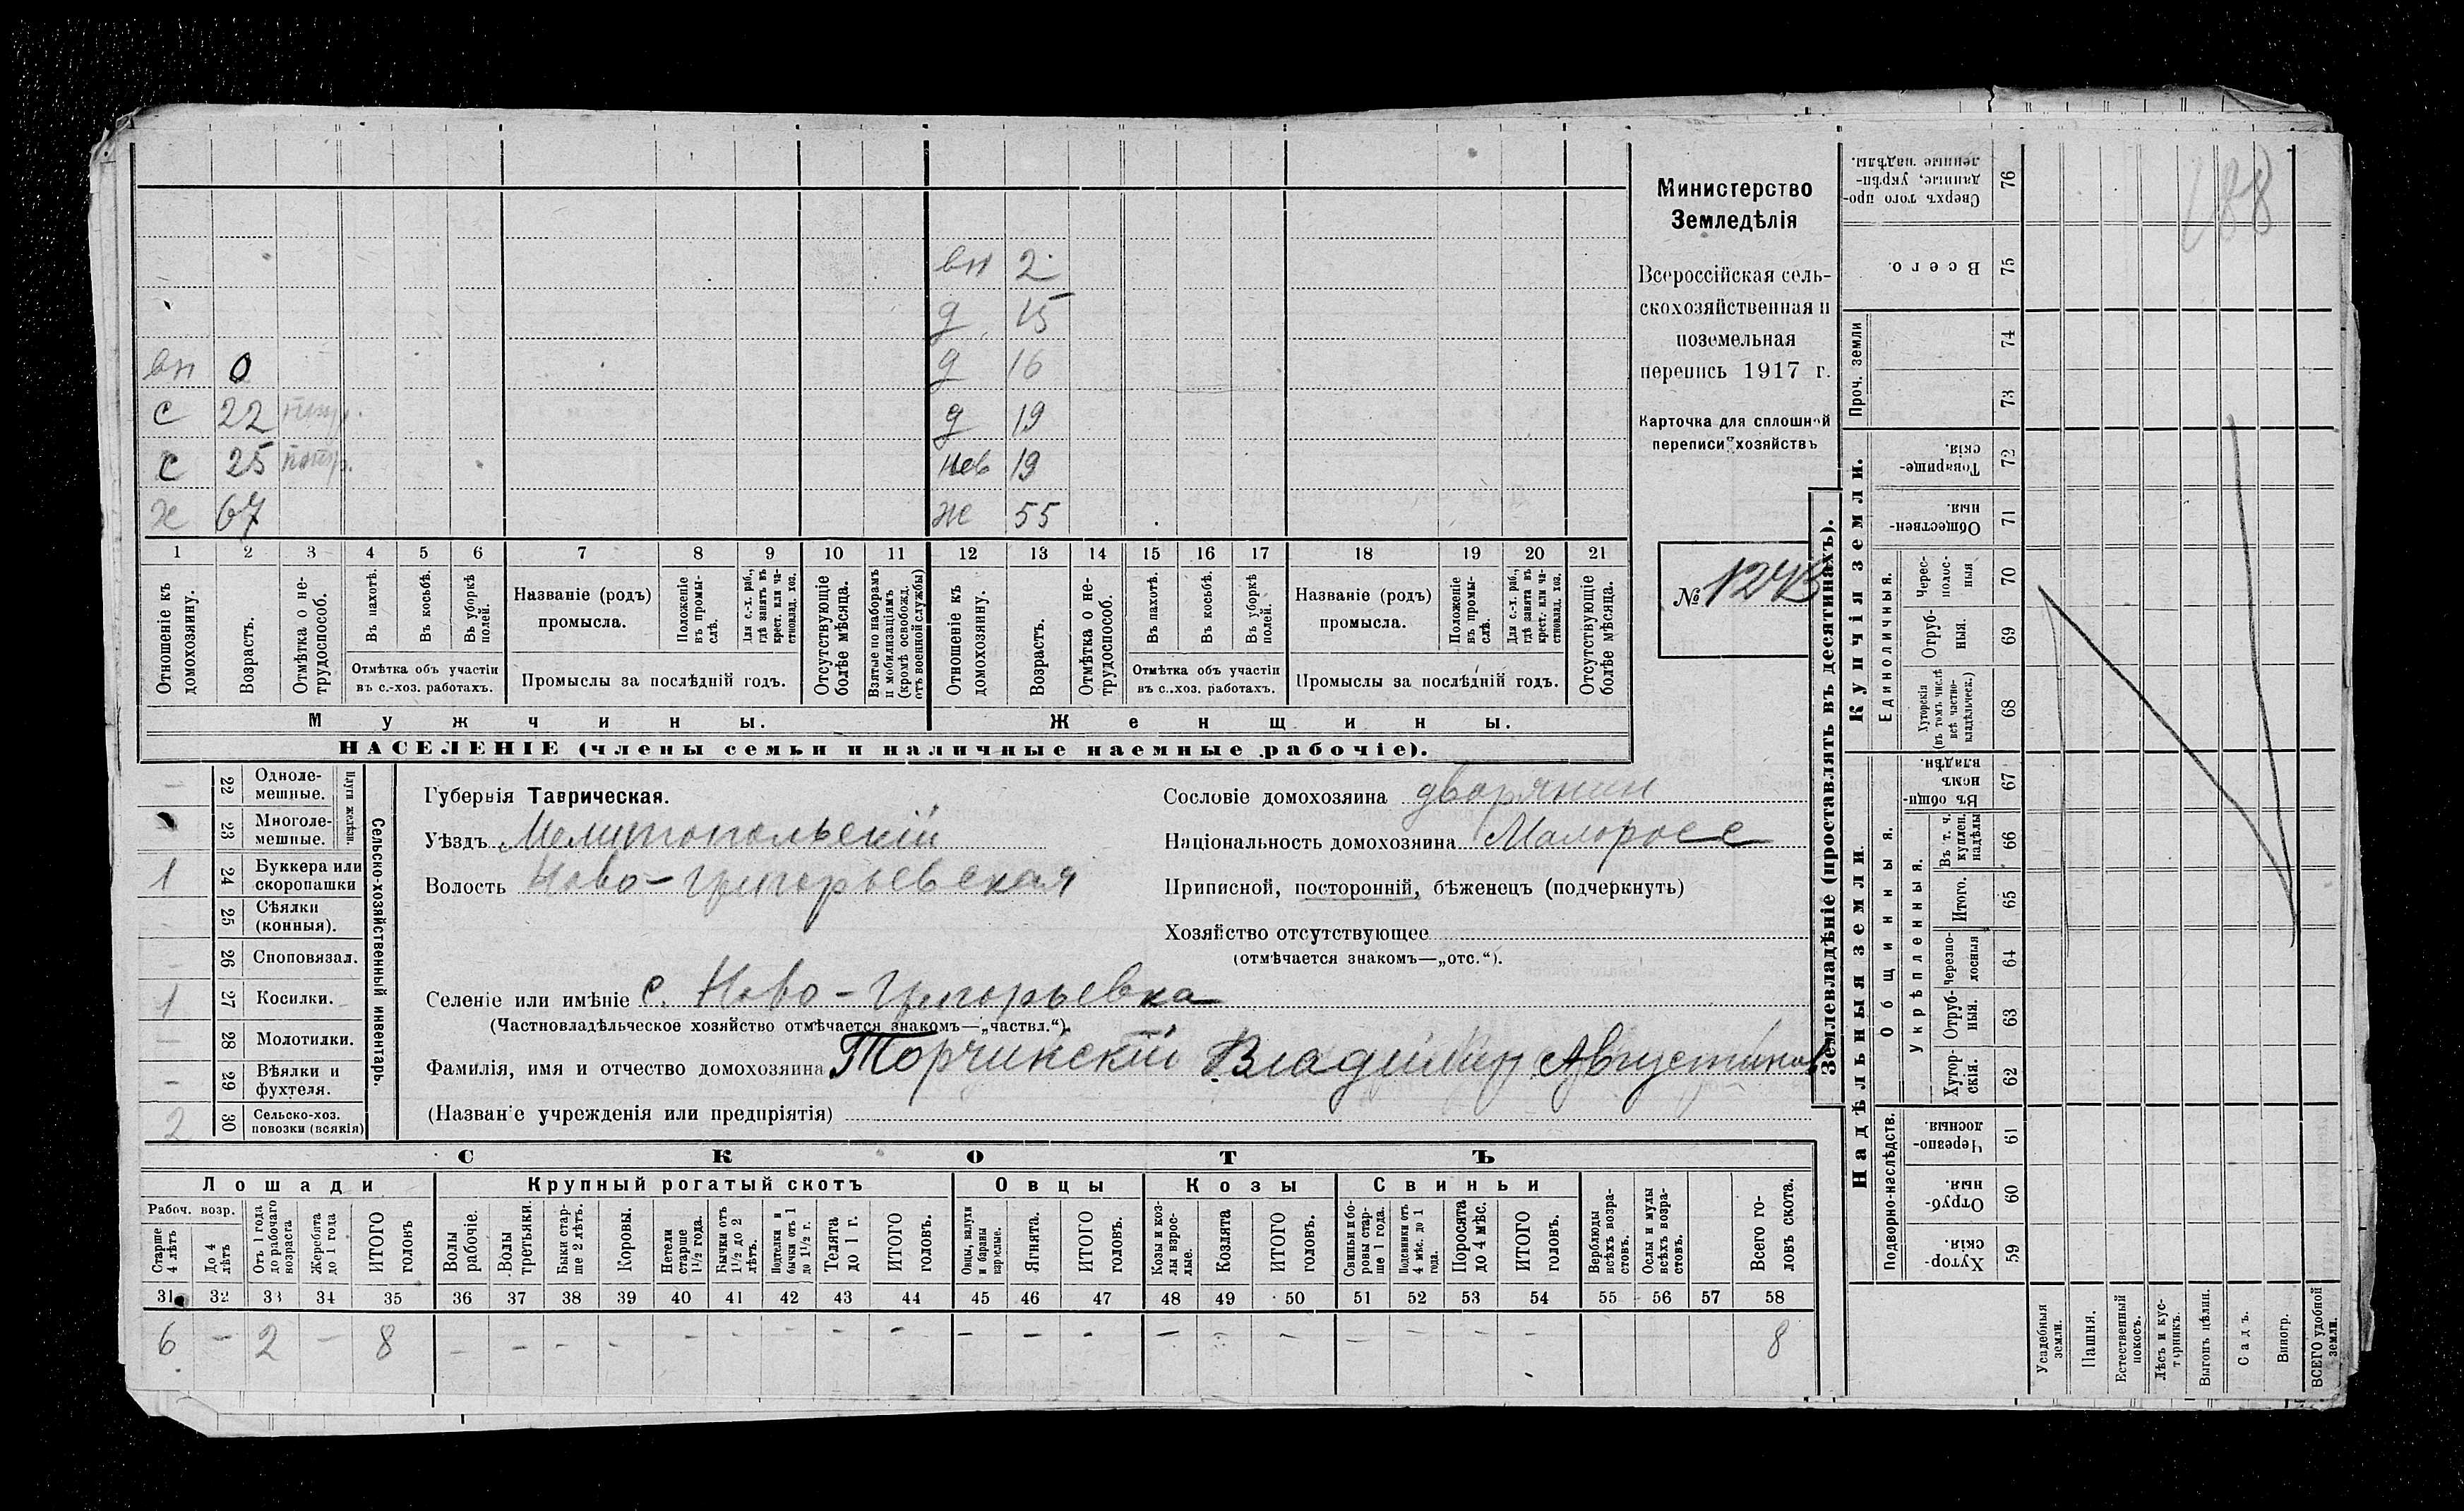 188
Министерство
Земледѣлія
Всероссійская сель-
скохозяйственная и
поземельная
перепись 1917 г.
Карточка для сплошной
переписи хозяйствъ
№
вн 2
д 15
д 16
д 19
нев 19
ж 55
вн 0
с 22
с 25
х 67
1 2 3 4 5 6 7 8 9 10 11 12 13 14 15 16 17 18 19 20 21
Отношеніе къ домохозяину.
Возрастъ.
Отмѣтка о не-
трудоспособ.
Въ пахотѣ.
Въ косьбѣ.
Въ уборкѣ
полей.
Отмѣтка объ участіи
въ с.-хоз. работахъ.
Названіе (родъ)
промысла.
Положеніе
въ промы-
слѣ.
Для с.-х. раб.,
гдѣ занятъ въ
крест. или ча-
стновлад. хоз.
Промыслы за послѣдній годъ.
Отсутствующіе
болѣе мѣсяца.
Взятые по наборамъ
и мобилизаціямъ
(кромѣ освобожд.
отъ военной службы)
Отношеніе къ
домохозяину.
Возрастъ.
Отмѣтка о не-
трудоспособ.
Въ пахотѣ.
Въ косьбѣ.
Въ уборкѣ
полей.
Отмѣтка объ участіи
въ с..хоз. работахъ.
Названіе (родъ)
промысла.
Положеніе
въ промы-
слѣ.
Для с.-х. раб.,
гдѣ занята въ
крест. или ча-
стновлад. хоз.
Промыслы за послѣдній годъ.
Отсутствующіе
болѣе мѣсяца.
Мужчины.
Женщины.
НАСЕЛЕНІЕ (члены семьи и наличные наемные рабочіе).
Сельско-хозяйственный инвентарь.
Плуги желѣзн.
— 22 Одноле-
мешные.
23 Многоле-
мешные.
1 24 Буккера или
скоропашки
— 25 Сѣялки
(конныя).
— 26 Сноповязал.
1 27 Косилки.
— 28 Молотилки.
— 29 Вѣялки и
фухтеля.
2 30 Сельско-хоз.
повозки (всякія)
Губернія Таврическая.
Уѣздъ Мелитопольскій
Волость Ново-Григорьевская
Селеніе или имѣніе с. Ново-Григорьевка
(Частновладѣльческое хозяйство отмѣчается знакомъ—„частвл.“).
Фамилія, имя и отчество домохозяина Торчинскій Владимир Августинов
(Названіе учрежденія или предпріятія)
Сословіе домохозяина дворянин
Національность домохозяина Малоросс
Приписной, посторонній, бѣженецъ (подчеркнуть)
Хозяйство отсутствующее
(отмѣчается знакомъ—„отс.“).
СКОТЪ
Лошади
Крупный рогатый скотъ
Овцы
Козы
Свиньи
Рабоч. возр.
Старше
4 лѣтъ
До 4
лѣтъ
Отъ 1 года
до рабочаго
возраста
Жеребята
до 1 года
ИТОГО
головъ
Волы
рабочіе.
Волы
третьяки.
Быки стар-
ше 2 лѣтъ.
Коровы.
Нетели
старше
1½ года.
Бычки отъ
1½ до 2
лѣтъ.
Подтелки и
бычки отъ 1
до 1½ г.
Телята
до 1 г.
ИТОГО
головъ.
Овцы, валухи
и бараны
взрослые.
Ягнята.
ИТОГО
головъ.
Козы и коз-
лы взрос-
лые.
Козлята
ИТОГО
головъ.
Свиньи и бо-
ровы стар-
ше 1 года.
Подсвинки отъ
4 мѣс. до 1
года.
Поросята
до 4 мѣс.
ИТОГО
головъ.
Верблюды
всѣхъ возра-
стовъ.
Ослы и мулы
всѣхъ возра-
стовъ.
Всего го-
ловъ скота.
31 32 33 34 35 36 37 38 39 40 41 42 43 44 45 46 47 48 49 50 51 52 53 54 55 56 57 58
6 — 2 — 8 — — — — — — — — — — — — — — — — — — — 8
Землевладѣніе (проставлять въ десятинахъ).
Купчія земли.
Надѣльныя земли.
Проч. земли
Единоличныя.
Общинныя.
Укрѣпленныя.
Подворно-наслѣдств.
Сверхъ того про-
данные, укрѣп-
ленные надѣлы. 76
Всего. 75
74
73
Товарище-
скія. 72
Обществен-
ныя. 71
Черес-
полос-
ныя 70
Отруб-
ныя. 69
Хуторскія
(въ томъ числѣ
всѣ частно-
владѣльческ.) 68
Въ общи-
номъ
владѣн. 67
Въ т. ч.
куплен.
надѣлы 66
Итого. 65
Черезпо-
лосныя 64
Отруб-
ныя. 63
Хутор-
скія. 62
Черезпо-
лосныя. 61
Отруб-
ныя. 60
Хутор-
скія. 59
Усадебныя
земли.
Пашня.
Естественный
покосъ.
Лѣсъ и кус-
тарникъ.
Выгонъ цѣлин.
Садъ.
Виногр.
ВСЕГО удобной
земли.